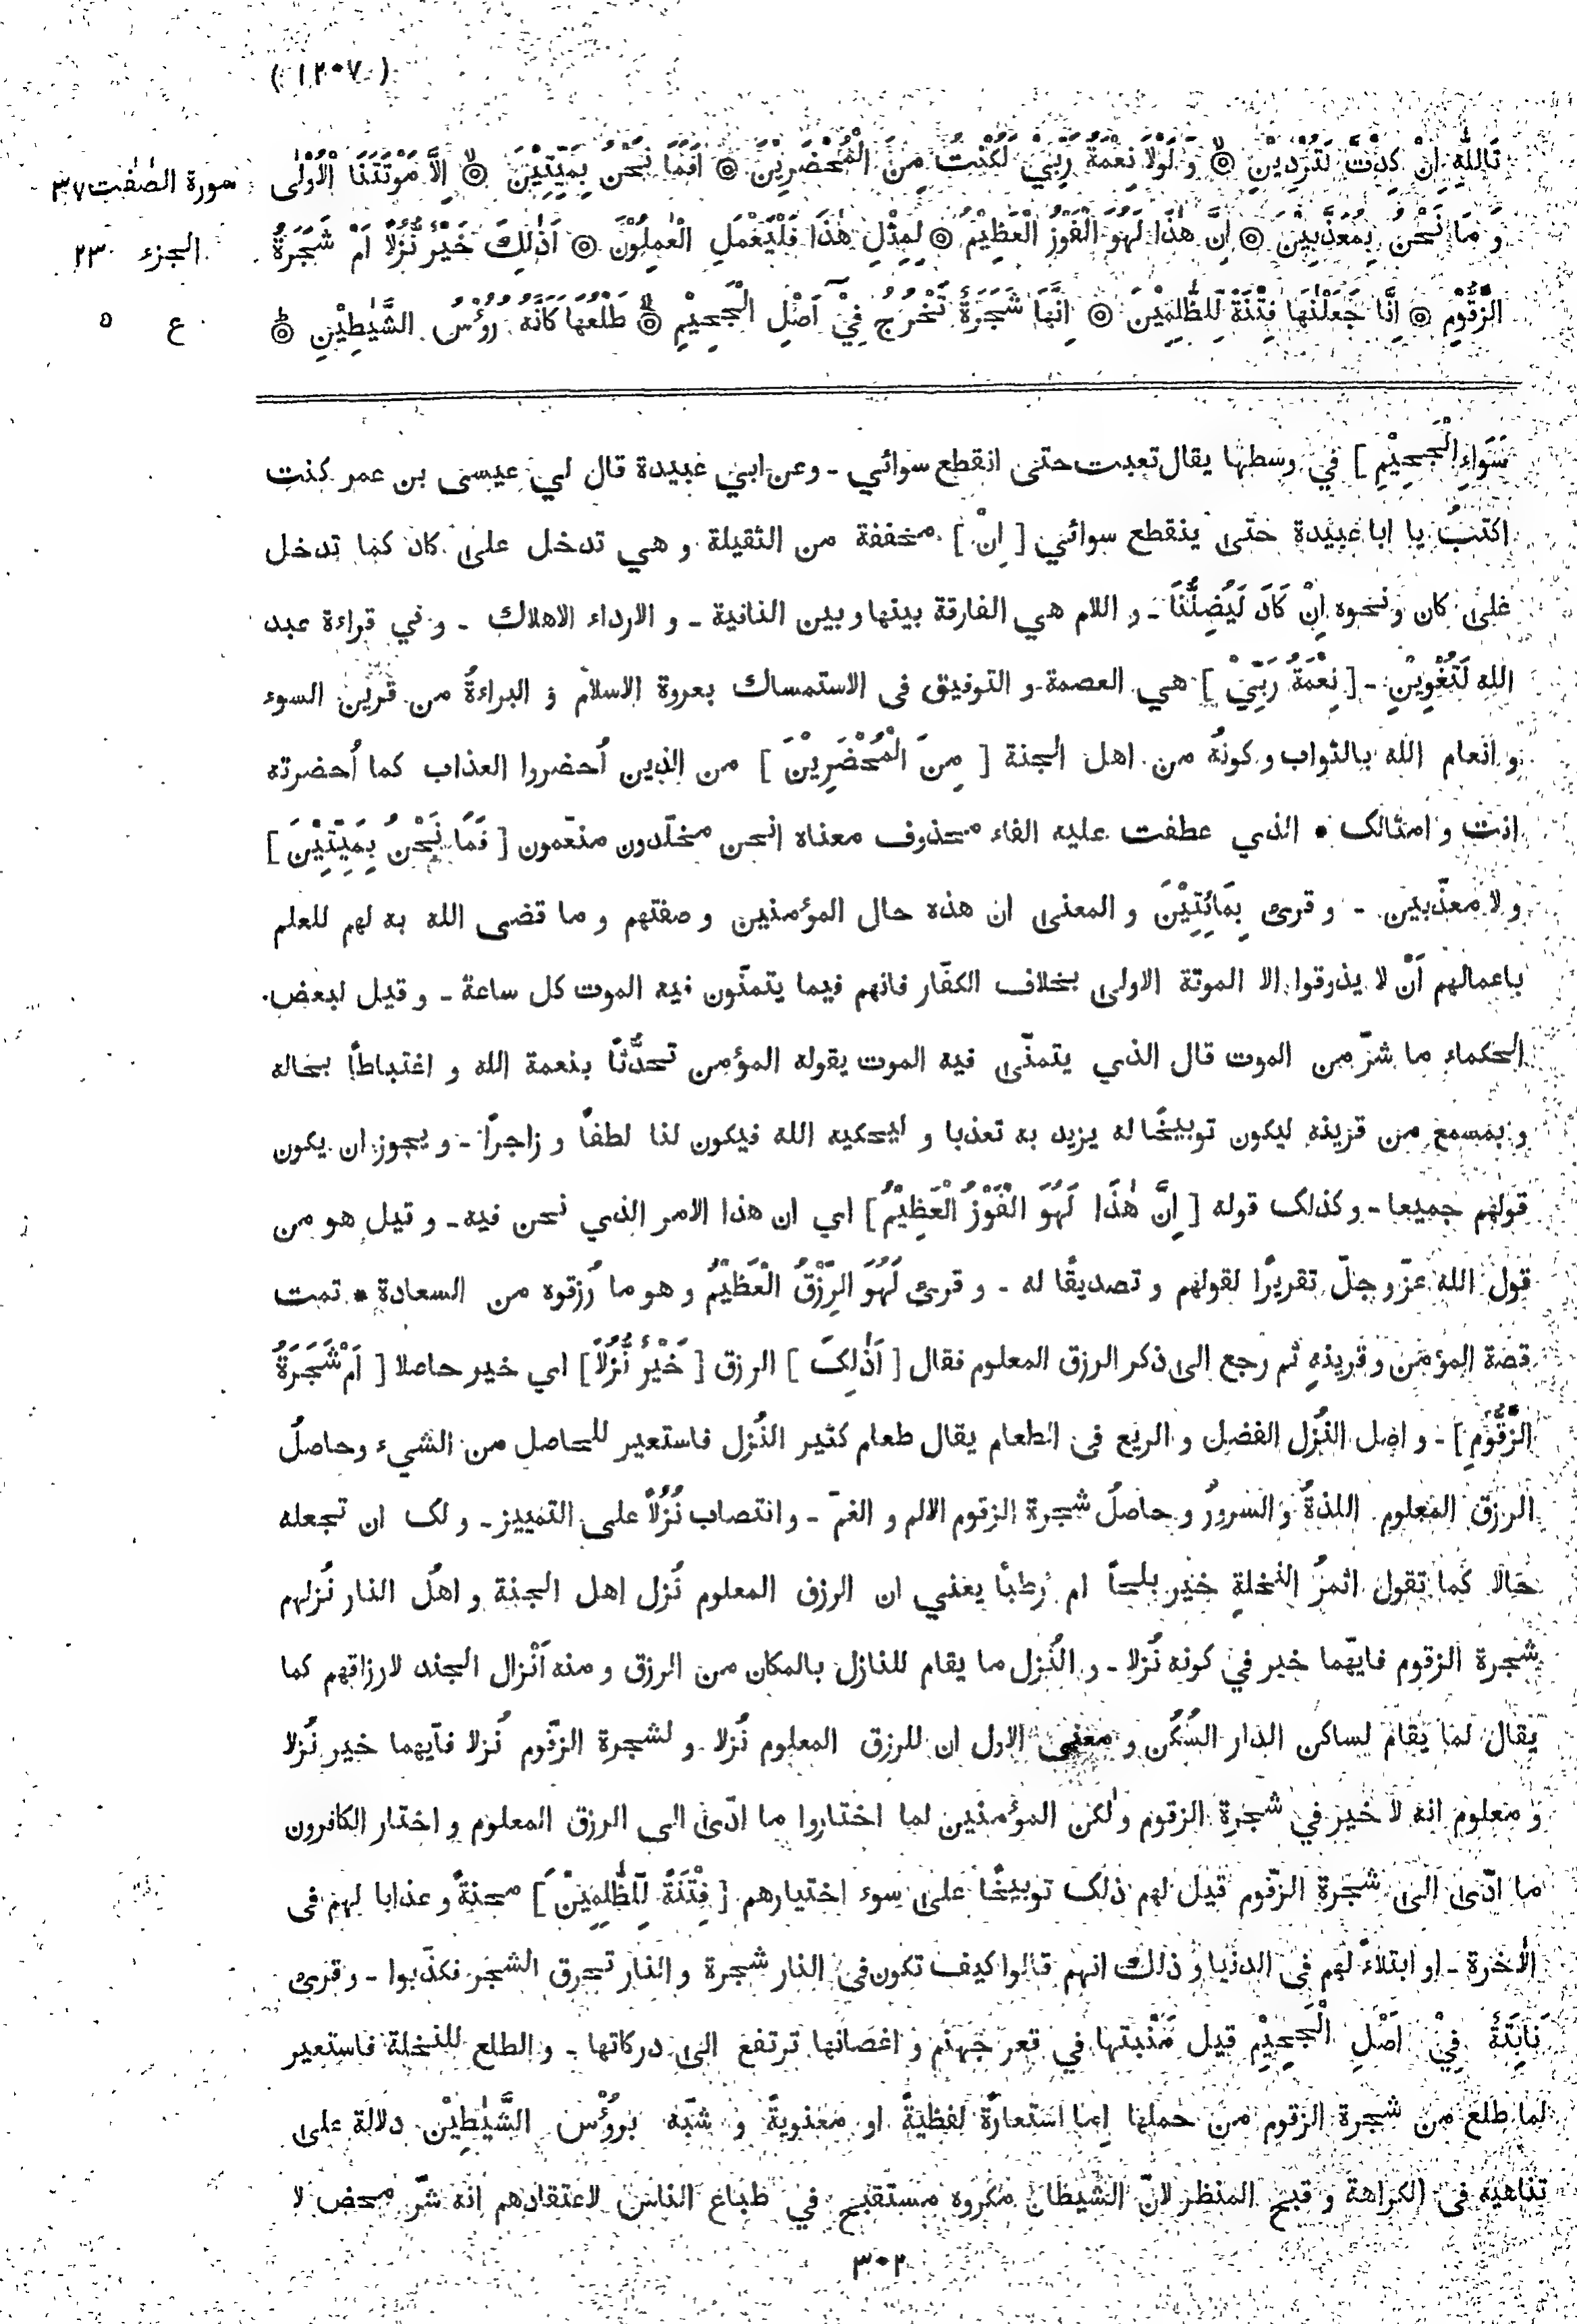 ( ١٢٠٧ )
تَاللّٰهِ اِنْ كِدْتَّ لَتُرْدِيْنِ ۞ وَ لَوْلَا نِعْمَةُ رَبِّيْ لَكُنْتُ مِنَ الْمُحْضَرِيْنَ ۞ اَفَمَا نَحْنُ بِمَيِّتِيْنَ ۞ اِلَّا مَوْتَتَنَا الْاُوْلٰى
سورة الصّٰفّٰت ٣٧
وَ مَا نَحْنُ بِمُعَذَّبِيْنَ ۞ اِنَّ هٰذَا لَهُوَ الْفَوْزُ الْعَظِيْمُ ۞ لِمِثْلِ هٰذَا فَلْيَعْمَلِ الْعٰمِلُوْنَ ۞ اَذٰلِكَ خَيْرٌ نُّزُلًا اَمْ شَجَرَةُ
الجزء ٢٣
الزَّقُّوْمِ ۞ اِنَّا جَعَلْنٰهَا فِتْنَةً لِّلظّٰلِمِيْنَ ۞ اِنَّهَا شَجَرَةٌ تَخْرُجُ فِيْٓ اَصْلِ الْجَحِيْمِ ۞ طَلْعُهَا كَاَنَّهٗ رُؤُسُ الشَّيٰطِيْنِ ۞
ع ٥
سَوَاءِ الْجَحِيْمِ ] في وسطها يقال تعبت حتى انقطع سوائي - وعن ابي عبيدة قال لي عيسى بن عمر كنت
اكتب يا ابا عبيدة حتى ينقطع سوائي [ اِنْ ] مخففة من الثقيلة و هي تدخل على كاد كما تدخل
على كان و نحوه اِنْ كَادَ لَيُضِلُّنَا - و اللام هي الفارقة بينها و بين النافية - و الارداء الاهلاك - و في قراءة عبد
الله لَتُغْوِيْنِ - [ نِعْمَةُ رَبِّيْ ] هي العصمة و التوفيق فى الاستمساك بعروة الاسلام و البراءةُ من قرين السوء
و انعام الله بالثواب و كونُه من اهل الجنة [ مِنَ الْمُحْضَرِيْنَ ] من الذين اُحضروا العذاب كما اُحضرته
انت و امثالك • الذي عطفت عليه الفاء محذوف معناه انحن مخلّدون منعّمون [ فَمَا نَحْنُ بِمَيِّتِيْنَ ]
و لا معذّبين - و قرئ بِمَائِتِيْنَ و المعنى ان هذه حال المؤمنين و صفتهم و ما قضى الله به لهم للعلم
باعمالهم اَنْ لا يذوقوا الا الموتة الاولى بخلاف الكفّار فانهم فيما يتمنّون فيه الموت كل ساعة - و قيل لبعض
الحكماء ما شرّ من الموت قال الذي يتمنّى فيه الموت يقوله المؤمن تحدُّثًا بنعمة الله و اغتباطًا بحاله
و بمسمع من قرينه ليكون توبيخًا له يزيد به تعذبا و ليحكيه الله فيكون لنا لطفًا و زاجرًا - و يجوز ان يكون
قولهم جميعا - و كذلك قوله [ اِنَّ هٰذَا لَهُوَ الْفَوْزُ الْعَظِيْمُ ] اي ان هذا الامر الذي نحن فيه - و قيل هو من
قول الله عزّ و جلّ تقريرًا لقولهم و تصديقًا له - و قرئ لَهُوَ الرِّزْقُ الْعَظِيْمُ و هو ما رُزقوه من السعادة • تمت
قصة المؤمن و قرينهِ ثم رجع الى ذكر الرزق المعلوم فقال [ اَذٰلِكَ ] الرزق [ خَيْرٌ نُّزُلًا ] اي خير حاصلا [ اَمْ شَجَرَةُ
الزَّقُّوْمِ ] - و اصل النُزُل الفضل و الريع فى الطعام يقال طعام كثير النُزل فاستعير للحاصل من الشيء وحاصلُ
الرزق المعلوم اللذةُ و السرورُ و حاصلُ شجرة الزقوم الالم و الغمّ - و انتصاب نُزُلًا على التمييز - و لك ان تجعله
حالا كما تقول اثمرُ النخلةِ خير بلحًا ام رُطبًا يعني ان الرزق المعلوم نُزل اهل الجنة و اهلُ النار نُزلهم
شجرة الزقوم فايّهما خير في كونه نُزلا - و النُزل ما يقام للنازل بالمكان من الرزق و منه اَنْزال الجند لارزاقهم كما
يقال لما يُقام لساكن الدار السُكُن و معنى الاول ان للرزق المعلوم نُزلا و لشجرة الزقّوم نُزلا فايّهما خير نُزلا
و معلوم انه لا خير في شجرة الزقوم ولكن المؤمنين لما اختاروا ما ادّى الى الرزق المعلوم و اختار الكافرون
ما ادّى الى شجرة الزقّوم قيل لهم ذلك توبيخًا على سوء اختيارهم [ فِتْنَةً لِّلظّٰلِمِيْنَ ] محنةً و عذابا لهم فى
الاٰخرة - او ابتلاءً لهم فى الدنيا و ذلك انهم قالوا كيف تكون فى النار شجرة و النار تحرق الشجر فكذّبوا - و قرئ
نَابِتَةٌ فِيْ اَصْلِ الْجَحِيْمِ قيل مَنْبتها في قعر جهنم و اغصانها ترتفع الى دركاتها - و الطلع للنخلة فاستعير
لما طلع من شجرة الزقوم من حملها اما استعارةً لفظيةً او معنويةً و شبّه برُؤُسِ الشَّيٰطِيْنِ دلالة على
تناهيه فى الكراهة و قبح المنظر لانّ الشيطان مكروه مستقبح في طباع الناس لاعتقادهم انه شرّ محض لا
٣٠٢